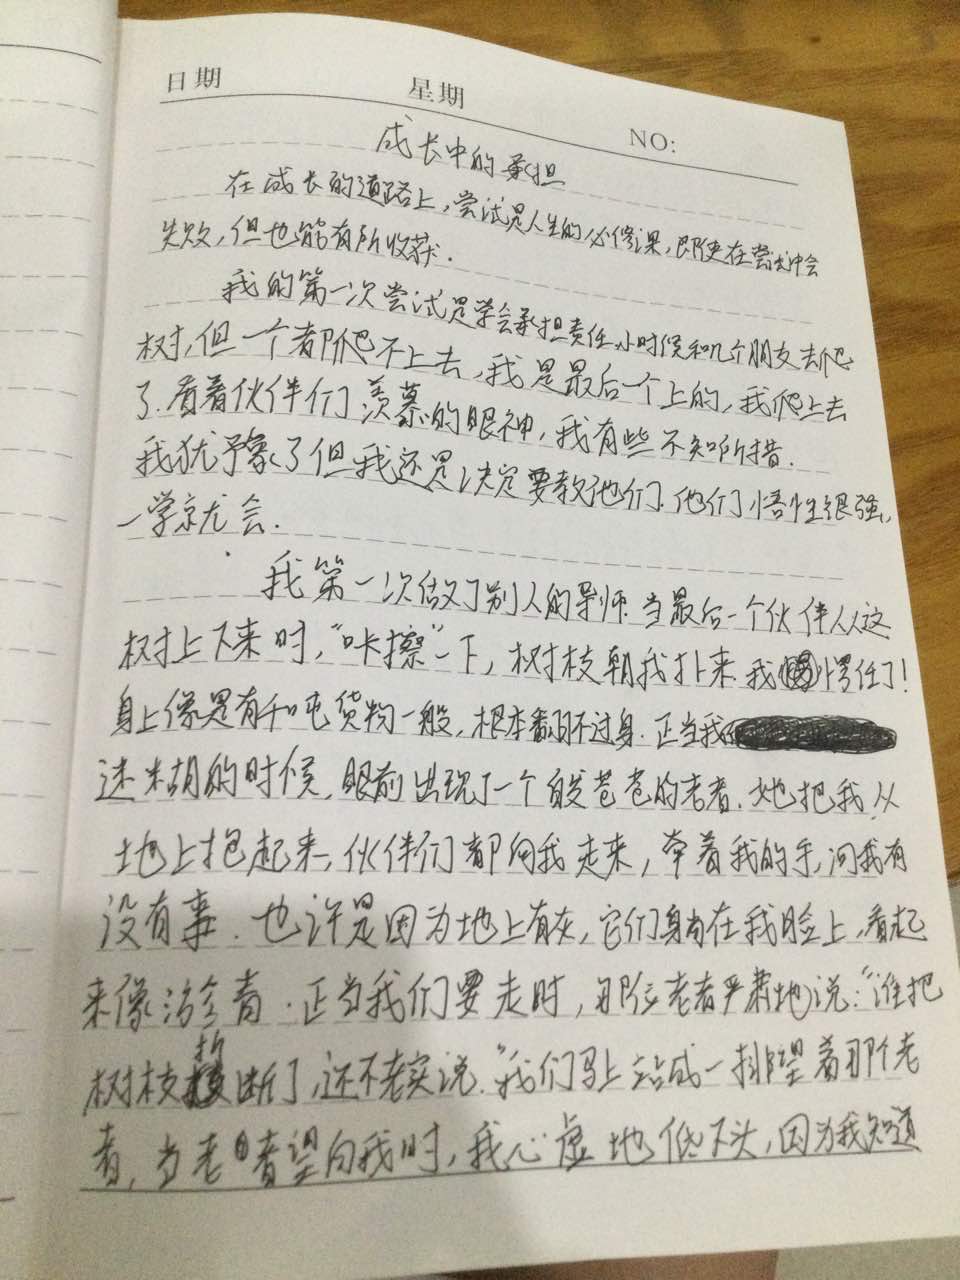 日期 星期 NO:
成长中的承担
在成长的道路上,尝试是人生的必修课,即使在尝试中会
失败,但也能有所收获.
我的第一次尝试是学会承担责任.小时候和几个朋友去爬
树,但一个都爬不上去,我是最后一个上的,我爬上去
了.看着伙伴们羡慕的眼神,我有些不知所措.
我犹予象了但我还是决定要教他们.他们悟性很强,
一学就会.
我第一次做了别人的导师.当最后一个伙伴从这
树上下来时,“咔擦”一下,树枝朝我扑来.我愣住了!
身上像是有千吨货物一般,根本翻不过身.正当我
迷糊的时候,眼前出现了一个白发苍苍的老者.她把我从
地上抱起来,伙伴们都向我走来,牵着我的手,问我有
没有事.也许是因为地上有灰,它们躺在我脸上,看起
来像淤青.正当我们要走时,那位老者严肃地说:“谁把
树枝折断了,还不老实说.”我们马上站成一排望着那个老
者,当老者望向我时,我心虚地低下头,因为我知道